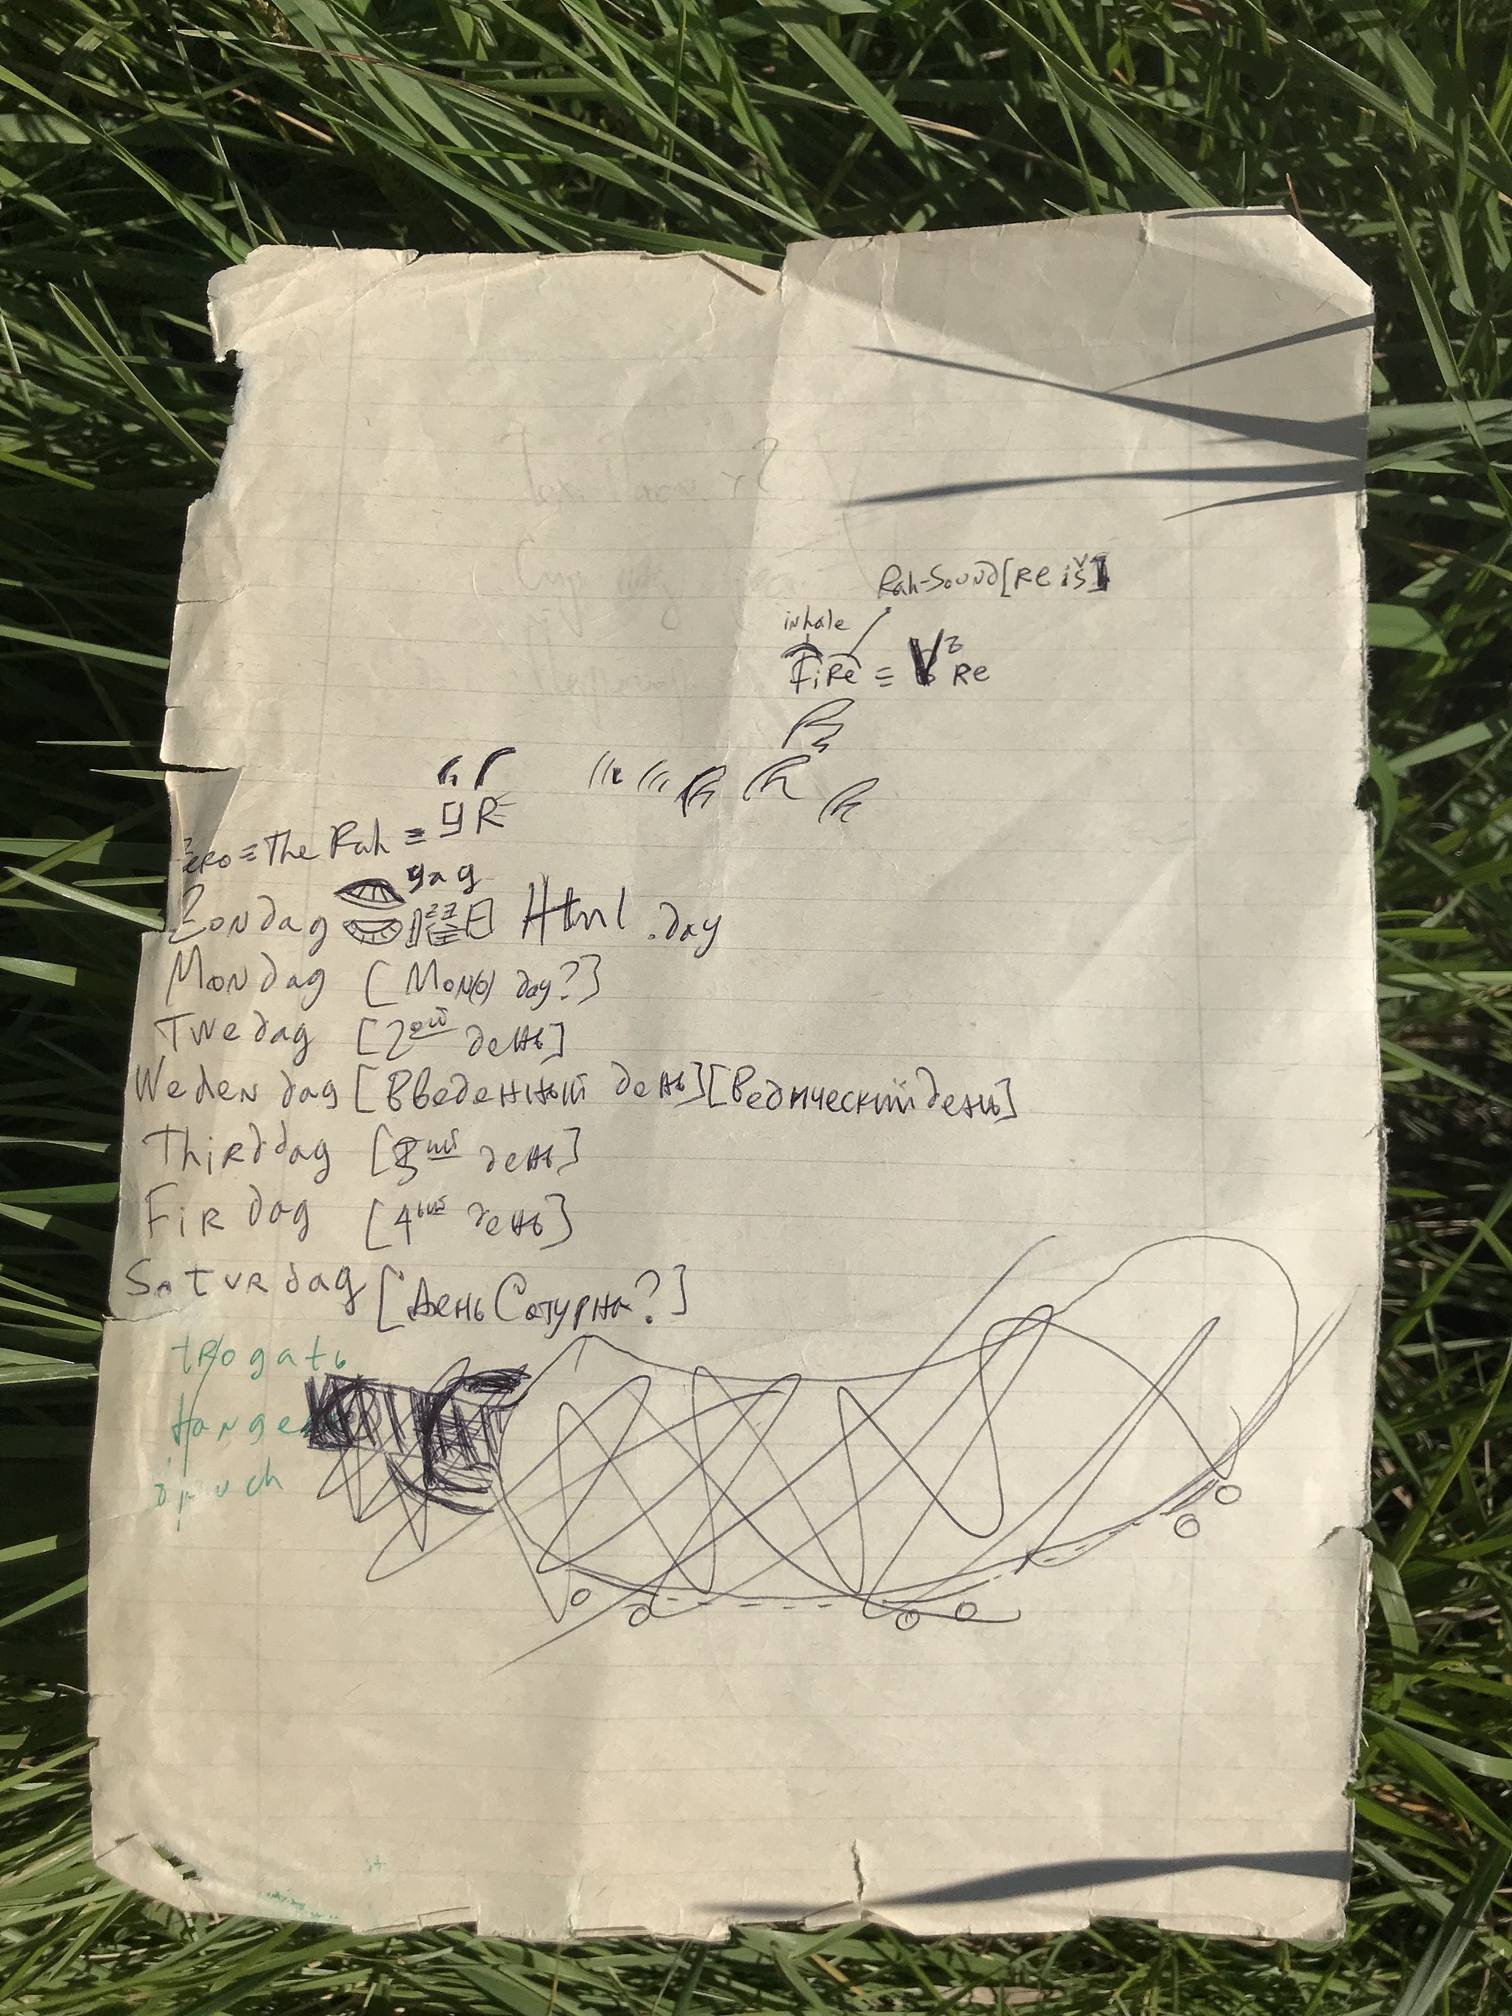 Rah-Sound[Re iš]
inhale
FiRe ≡ V³ Re
yR
Zero ≡ The Rah ≡
yag
Zondag 曜日 Html .day
Mondag [Mon(o) day?]
Twedag [2ой день]
Weden dag [Введенный день][Ведический день]
Thirddag [3ий день]
Fir dag [4ый день]
Saturdag [День Сатурна?]
trogatь